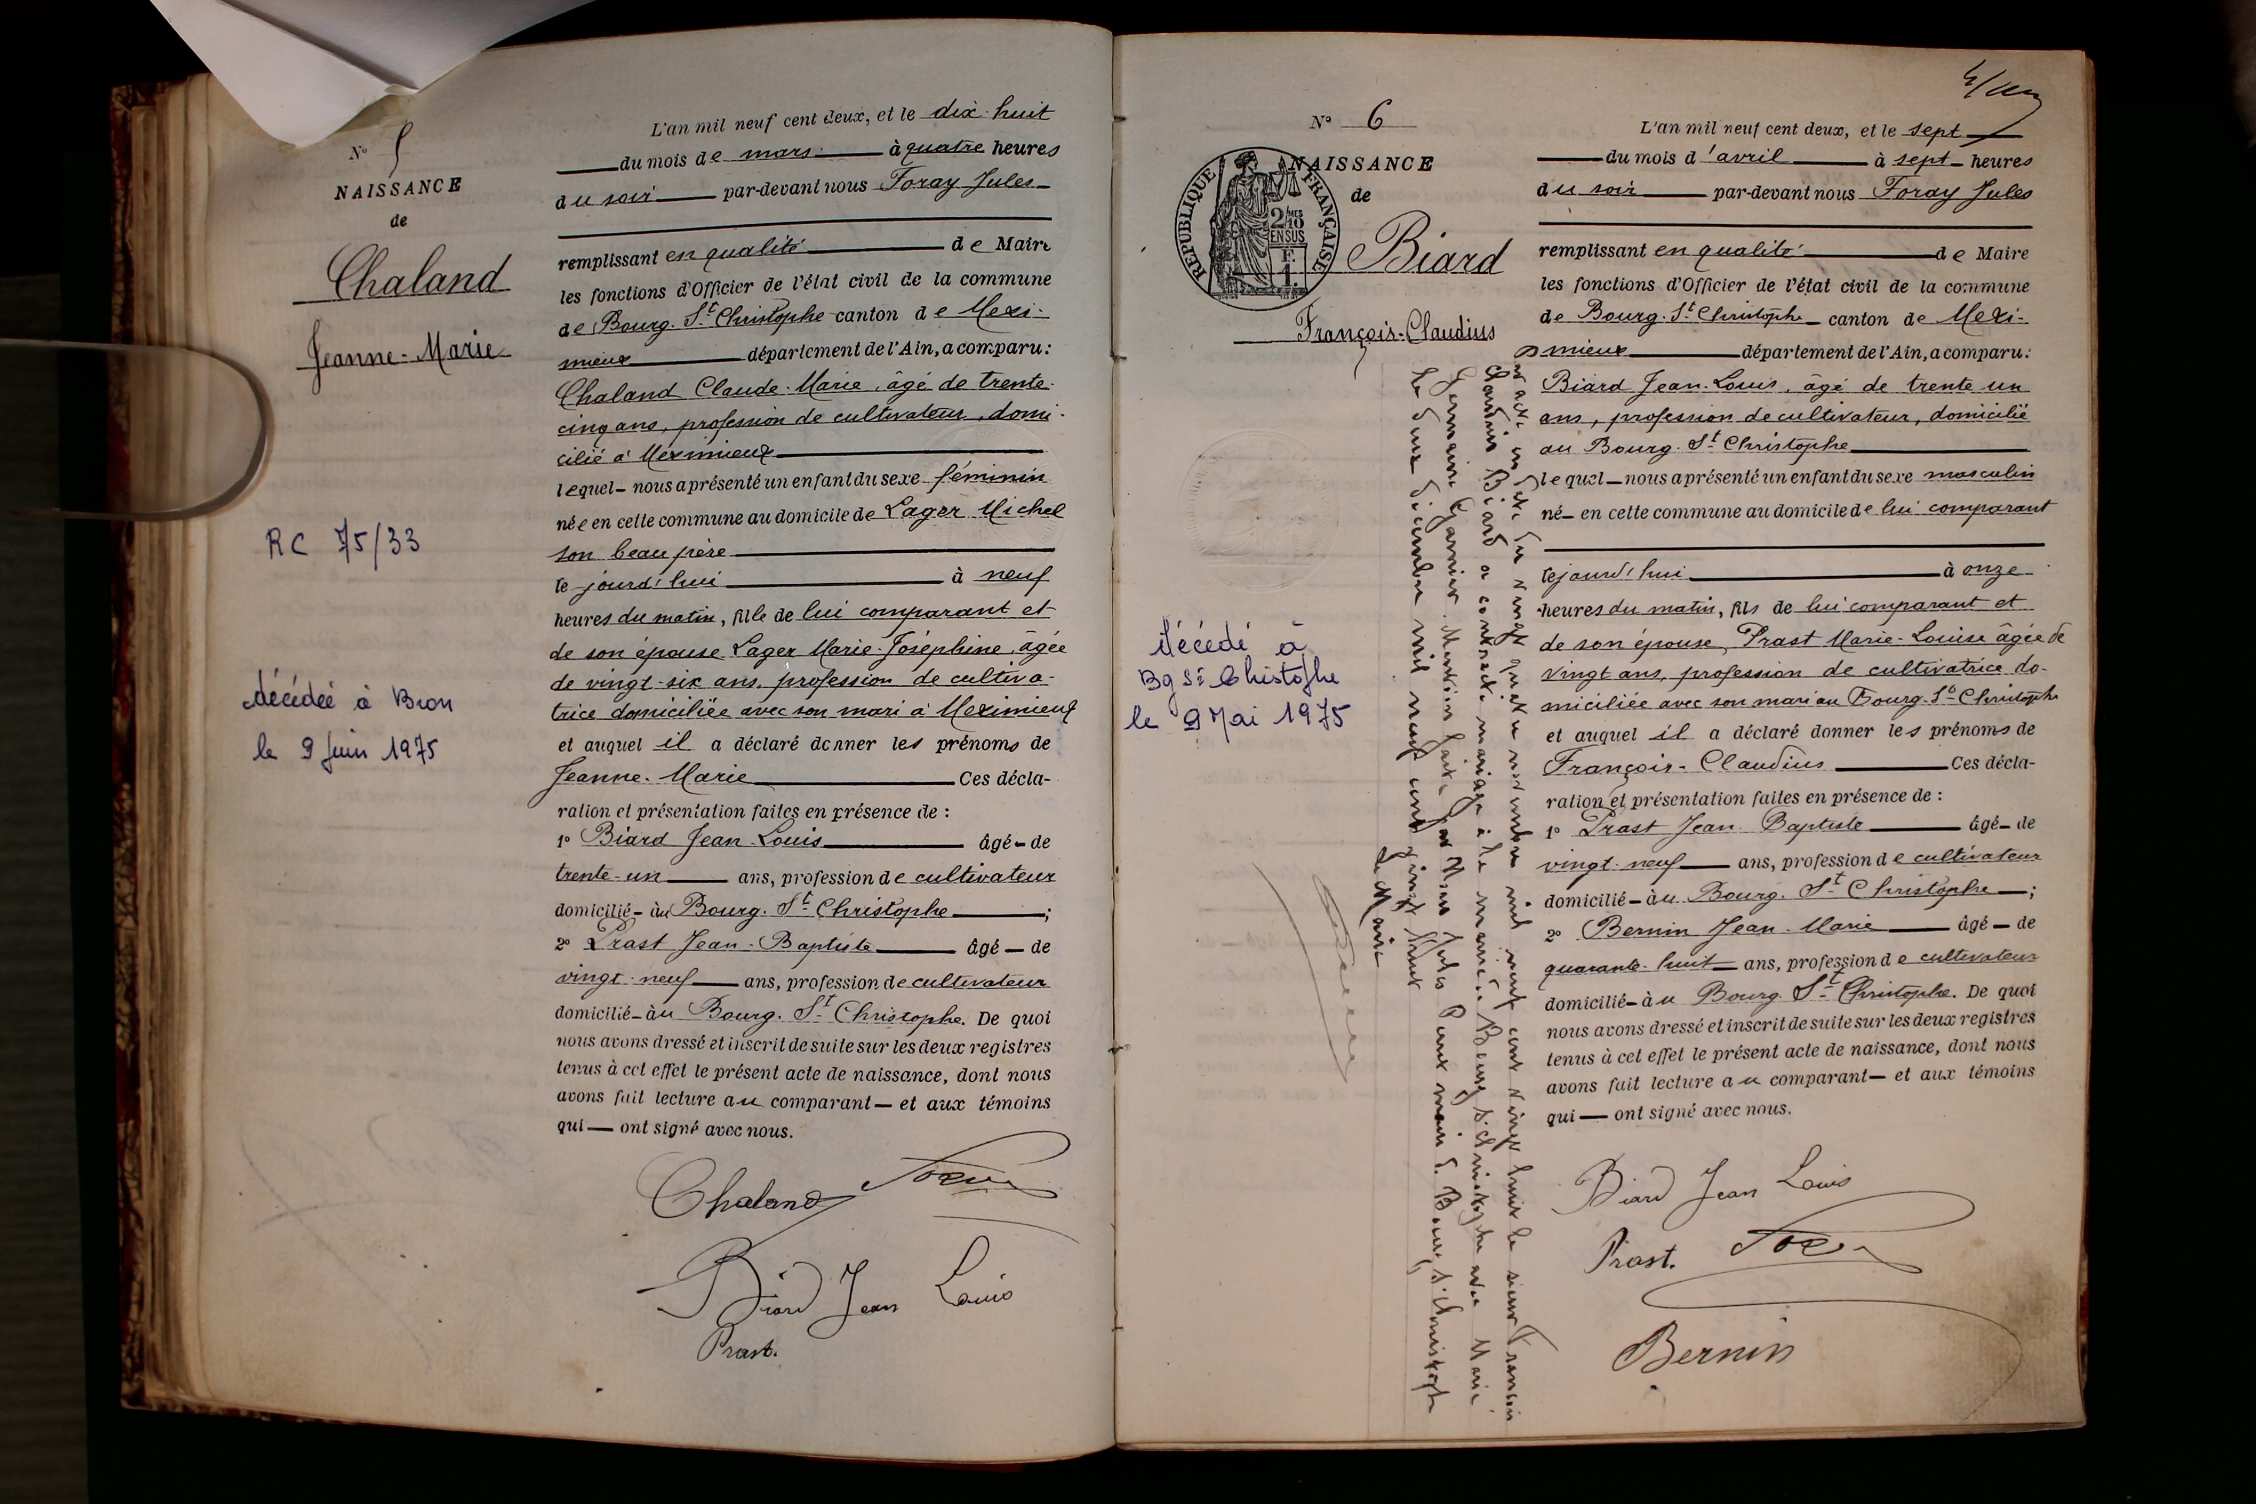 N° 5
NAISSANCE
de
Chaland
Jeanne-Marie
RC 75/33
décédée à Bron
le 9 Juin 1975
L'an mil neuf cent deux, et le dix-huit
du mois de mars à quatre heures
du soir par-devant nous Foray Jules
remplissant en qualité de Maire
les fonctions d'Officier de l'état civil de la commune
de Bourg-St-Christophe canton de Mexi-
mieux département de l'Ain, a comparu :
Chaland Claude-Marie, âgé de trente-
cinq ans, profession de cultivateur, domi-
cilié à Meximieux
lequel nous a présenté un enfant du sexe féminin
née en cette commune au domicile de Lager Michel
son beau père
le jourd'hui à neuf
heures du matin, fille de lui comparant et
de son épouse Lager Marie-Joséphine, âgée
de vingt-six ans, profession de cultiva-
trice domiciliée avec son mari à Meximieux
et auquel il a déclaré donner les prénoms de
Jeanne-Marie Ces décla-
ration et présentation faites en présence de :
1° Biard Jean Louis âgé de
trente-un ans, profession de cultivateur
domicilié au Bourg-St-Christophe ;
2° Prast Jean-Baptiste âgé de
vingt-neuf ans, profession de cultivateur
domicilié au Bourg-St-Christophe. De quoi
nous avons dressé et inscrit de suite sur les deux registres
tenus à cet effet le présent acte de naissance, dont nous
avons fait lecture au comparant et aux témoins
qui ont signé avec nous.
Chaland Foray
Biard Jean Louis
Prast.
N° 6
NAISSANCE
de
RÉPUBLIQUE FRANÇAISE
2/10 EN SUS
F. 1.
Biard
François-Claudius
Décédé à
Bg St Christophe
le 9 Mai 1975
Par acte en date du vingt quatre novembre mil neuf cent vingt huit le sieur François
Claudius Biard a contracté mariage à la mairie de Bourg St Christophe avec Marie
Germaine Garnier. Mention faite par Nous Jules Paux maire de Bourg St Christophe
le deux décembre mil neuf cent vingt huit
Le Maire
L'an mil neuf cent deux, et le sept
du mois d'avril à sept heures
du soir par-devant nous Foray Jules
remplissant en qualité de Maire
les fonctions d'Officier de l'état civil de la commune
de Bourg-St-Christophe canton de Mexi-
mieux département de l'Ain, a comparu :
Biard Jean-Louis, âgé de trente un
ans, profession de cultivateur, domicilié
au Bourg-St-Christophe
lequel nous a présenté un enfant du sexe masculin
né en cette commune au domicile de lui comparant
le jourd'hui à onze
heures du matin, fils de lui comparant et
de son épouse, Prast Marie-Louise âgée de
vingt ans, profession de cultivatrice do-
miciliée avec son mari au Bourg-St-Christophe
et auquel il a déclaré donner les prénoms de
François-Claudius Ces décla-
ration et présentation faites en présence de :
1° Prast Jean Baptiste âgé de
vingt-neuf ans, profession de cultivateur
domicilié au Bourg-St-Christophe ;
2° Bernin Jean-Marie âgé de
quarante-huit ans, profession de cultivateur
domicilié au Bourg-St-Christophe. De quoi
nous avons dressé et inscrit de suite sur les deux registres
tenus à cet effet le présent acte de naissance, dont nous
avons fait lecture au comparant et aux témoins
qui ont signé avec nous.
Biard Jean Louis
Prast. Foray
Bernin